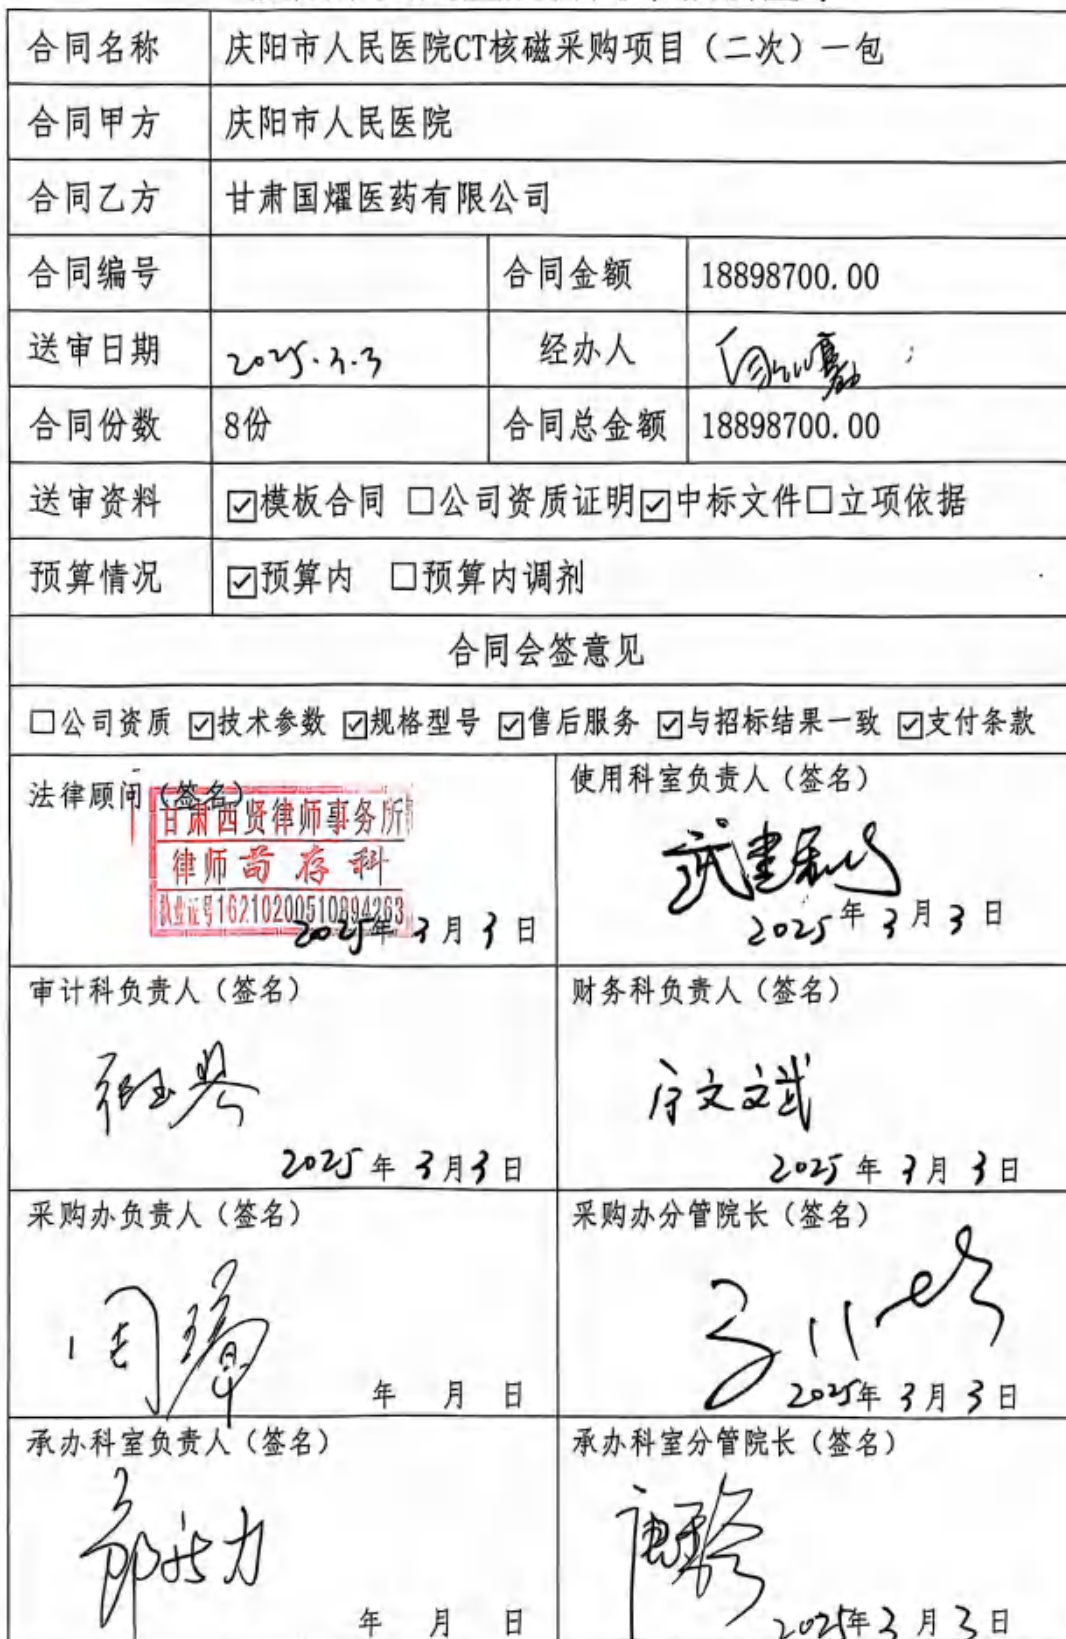 合同名称 庆阳市人民医院CT核磁采购项目（二次）一包
合同甲方 庆阳市人民医院
合同乙方 甘肃国燿医药有限公司
合同编号 合同金额 18898700.00
送审日期 2025.3.3 经办人
合同份数 8份 合同总金额 18898700.00
送审资料 ☑模板合同 □公司资质证明☑中标文件□立项依据
预算情况 ☑预算内 □预算内调剂
合同会签意见
□公司资质 ☑技术参数 ☑规格型号 ☑售后服务 ☑与招标结果一致 ☑支付条款
法律顾问（签名）
甘肃西贤律师事务所
律师苟存科
执业证号16210200510894263
2025年3月3日
使用科室负责人（签名）
2025年3月3日
审计科负责人（签名）
2025年3月3日
财务科负责人（签名）
文斌
2025年3月3日
采购办负责人（签名）
周
年 月 日
采购办分管院长（签名）
2025年3月3日
承办科室负责人（签名）
年 月 日
承办科室分管院长（签名）
2025年3月3日